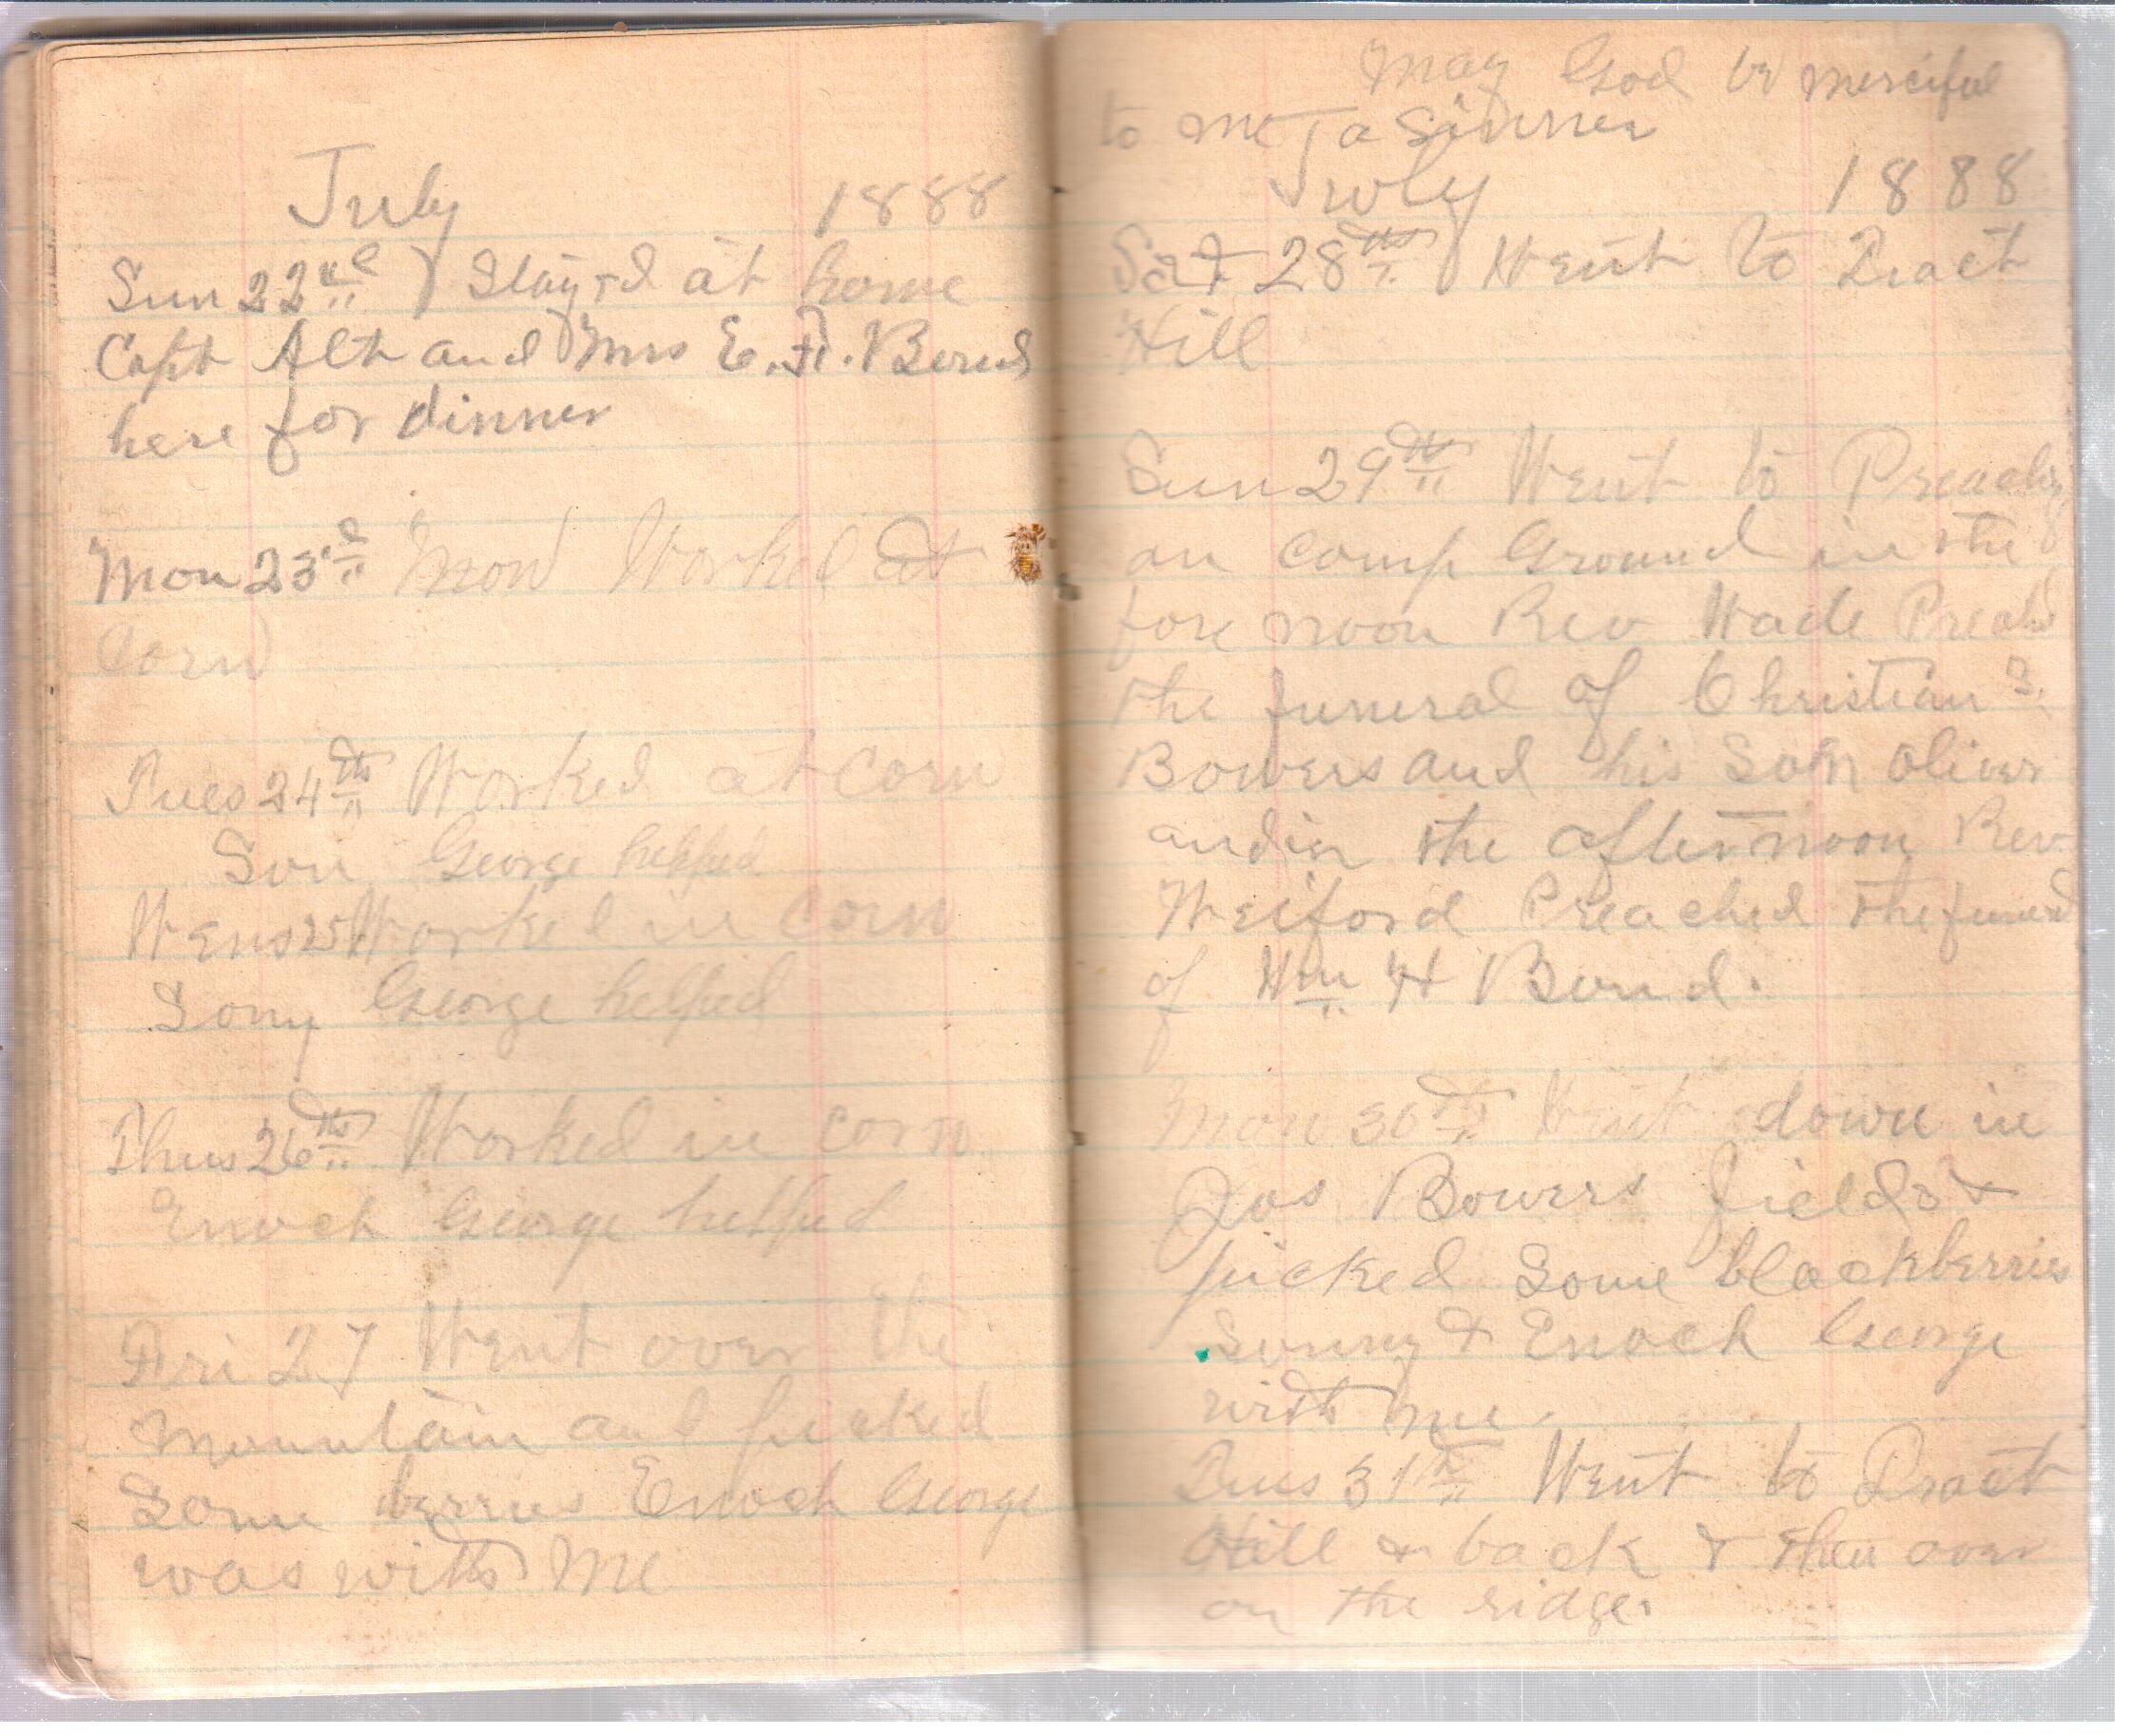 July 1888
Sun 22nd Stayed at home
Capt Alt and Mrs E. F.
here for dinner
Mon 23d Worked at
corn
Tues 24th Worked at corn
Son George helped
Wens 25 Worked in corn
Sony George helped
Thus 26th Worked in corn
Enoch George helped
Fri 27 Went over the
mountain and picked
Some berries Enoch George
was with Me
May God be merciful
to me a Sinner
July 1888
Sat 28th Went to Tract
Hill
Sun 29th Went to
on Camp Ground in the
fore noon Rev Wade
the funeral of Christian
Bowers and his Son Oliver
and in the afternoon Rev
Weiford Preached the funeral
of Wm H Bond.
Mon 30th Went down in
Jos Bowers fields &
picked Some blackberries
Sonny & Enoch George
with me.
Tues 31st Went to Tract
Hill & back & then over
on the ridge.